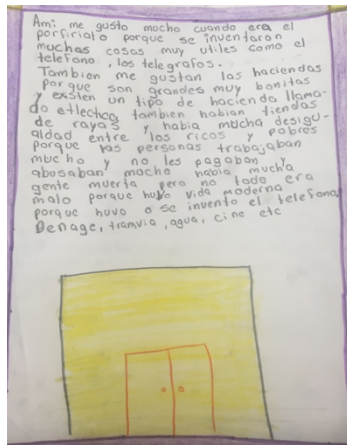 Ami me gusto mucho cuando era el
porfiriato porque se inventaron
muchas cosas muy utiles como el
telefono, los telegrafos.
Tambien me gustan las haciendas
porque son grandes muy bonitas
y existen un tipo de hacienda llama-
do etlechca, tambien habian tiendas
de rayas y habia mucha desigu-
aldad entre los ricos y pobres
porque las personas trabajaban
mucho y no les pagaban y
abusaban mucho habia mucha
gente muerta pero no todo era
malo porque huvo vida moderna
porque huvo o se invento el telefono,
Denage, tranvia, agua, cine etc